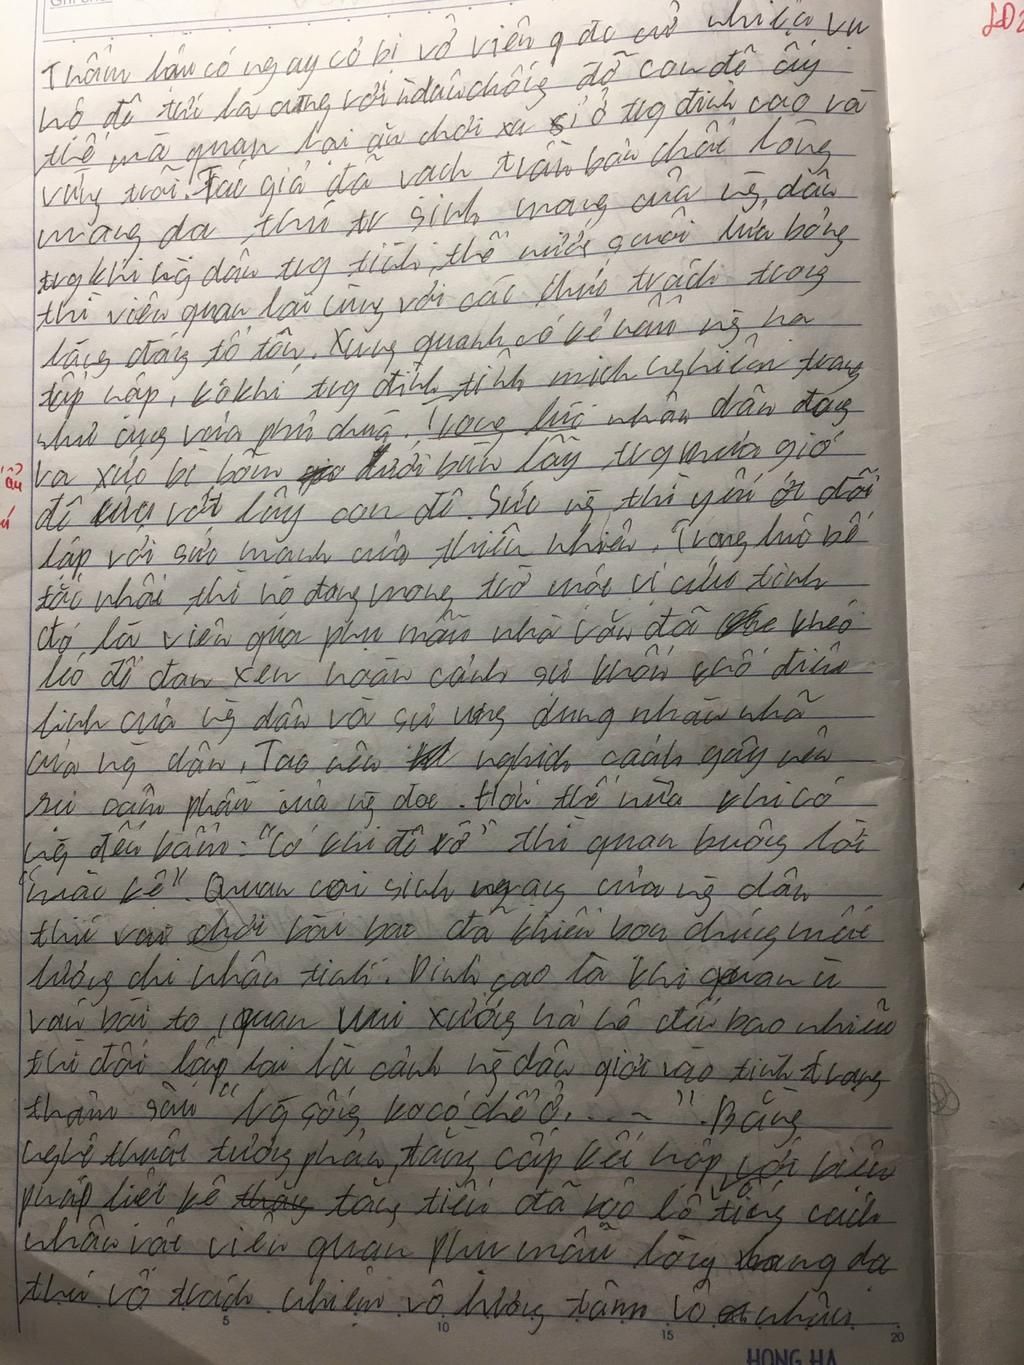 thẩm lậu có nguy cơ bị vỡ viên q đc cử nhiệm vụ
hộ đê tức là cùng với n dân chống đỡ con đê ấy
thế mà quan lại ăn chơi xa xỉ ở trg đình cao và
vững trãi. Tác giả đã vạch trần bản chất lòng
mang dạ thú sinh mạng của ng dân
trg khi ng dân trg tình thế nước quôi lửa bỏng
thì viên quan lại cùng với các chức trách trong
làng đáng tổ tôm. Xung quanh có kẻ hầu ng hạ
tấp nập, kokhí trg đình tĩnh mịch nghiêm trang
như cung vua phủ chúa. Trong lúc nhân dân đang
ra xức bì bõm dưới bùn lầy trg mưa gió
để cứu vớt lấy con đê. Sức ng thì yếu ớt đối
lập với sức mạnh của thiên nhiên. Trong lúc bế
tắc nhất thì họ đang mong trờ một vị cứu tinh
đó là viên qua phụ mẫu nhà văn đã khéo
léo để đan xen hoàn cảnh sự khốn khổ điêu
linh của ng dân và sự ung dung nhàn nhã
của ng dân. Tạo nên nghịch cảnh gây nên
sự căm phẫn của ng đọc. Hơn thế nữa khi có
ng đến bẩm: "Có khi đê vỡ" thì quan buông lời
"mặc kệ". Quan coi sinh mạng của ng dân
thú vui chơi bài bạc đã khiến bọn chúng mất
lương chi nhân tính. Đỉnh cao là khi quan ù
ván bài to, quan vui xướng hả hê đến bao nhiêu
thì đối lập lại là cảnh ng dân giơi vào tình trạng
thảm sầu "kẻ sống ko có chỗ ở. ... ~ ". Bằng
nghệ thuật tương phản, tăng cấp kết hợp với biện
pháp liệt kê tăng tiến đã bộc lộ tiếng cách
nhân vật viên quan phụ mẫu lòng mang dạ
thú vô trách nhiệm vô lương tâm vô nhân
5 10 15 20
HONG HA